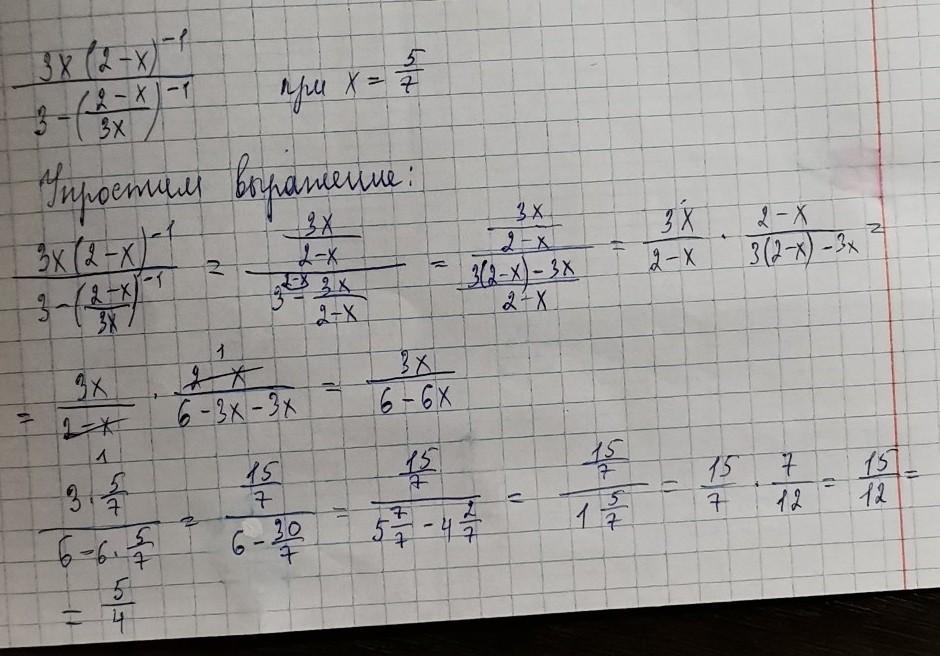 \frac{3x(2-x)^{-1}}{3-(\frac{2-x}{3x})^{-1}} при x = \frac{5}{7}
Упростим выражение:
\frac{3x(2-x)^{-1}}{3-(\frac{2-x}{3x})^{-1}} = \frac{\frac{3x}{2-x}}{3^{2-x}-\frac{3x}{2-x}} = \frac{\frac{3x}{2-x}}{\frac{3(2-x)-3x}{2-x}} = \frac{3x}{2-x} \cdot \frac{2-x}{3(2-x)-3x} =
= \frac{3x}{2-x 1} \cdot \frac{2-x 1}{6-3x-3x} = \frac{3x}{6-6x}
\frac{3 \cdot \frac{5}{7}}{6-6 \cdot \frac{5}{7}} = \frac{\frac{15}{7}}{6-\frac{30}{7}} = \frac{\frac{15}{7}}{5\frac{7}{7}-4\frac{2}{7}} = \frac{\frac{15}{7}}{1\frac{5}{7}} = \frac{15}{7} \cdot \frac{7}{12} = \frac{15}{12} =
= \frac{5}{4}